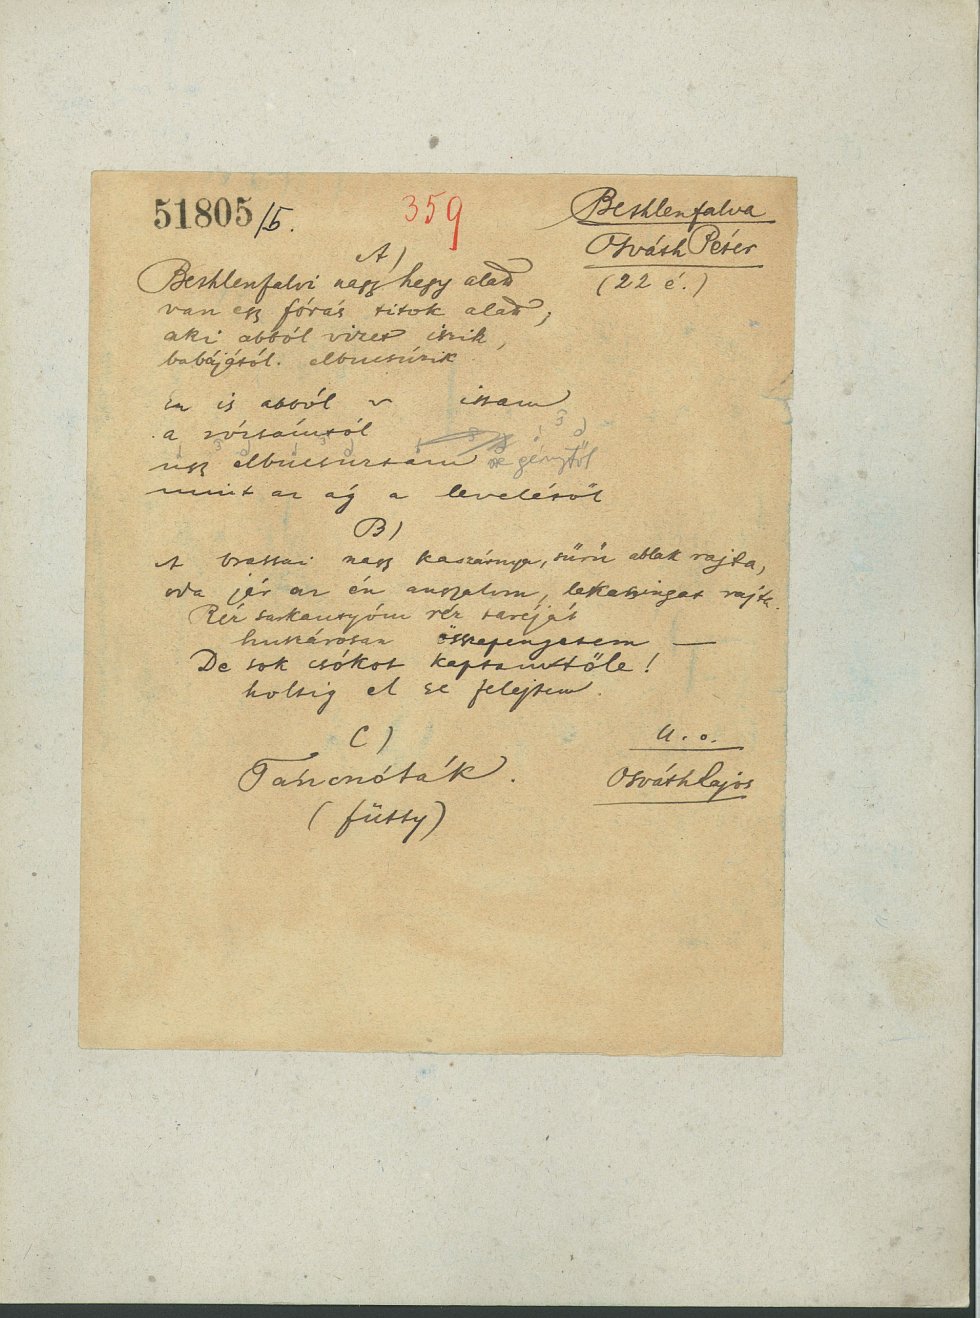 51805/5.
359
Bethlenfalva
Osváth Péter
(22 é.)
A)
Bethlenfalvi nagy hegy alatt
van egy fórás titok alatt,
aki abból vizet iszik,
babájától. elbucsúzik
Én is abból v ittam
a rózsámtól
ugy elbucsuztam
mint az ág a levelétől
B)
A brassai nagy kaszárnya, sűrű ablak rajta,
oda jár az én angyalom, lakatingat rajta.
Réz sarkantyúm réz taréját
huszárosan összepengetem —
De sok csókot kaptam tőle!
holtig el se felejtem.
C)
Táncnóták.
(fütty)
U. o.
Osváth Lajos